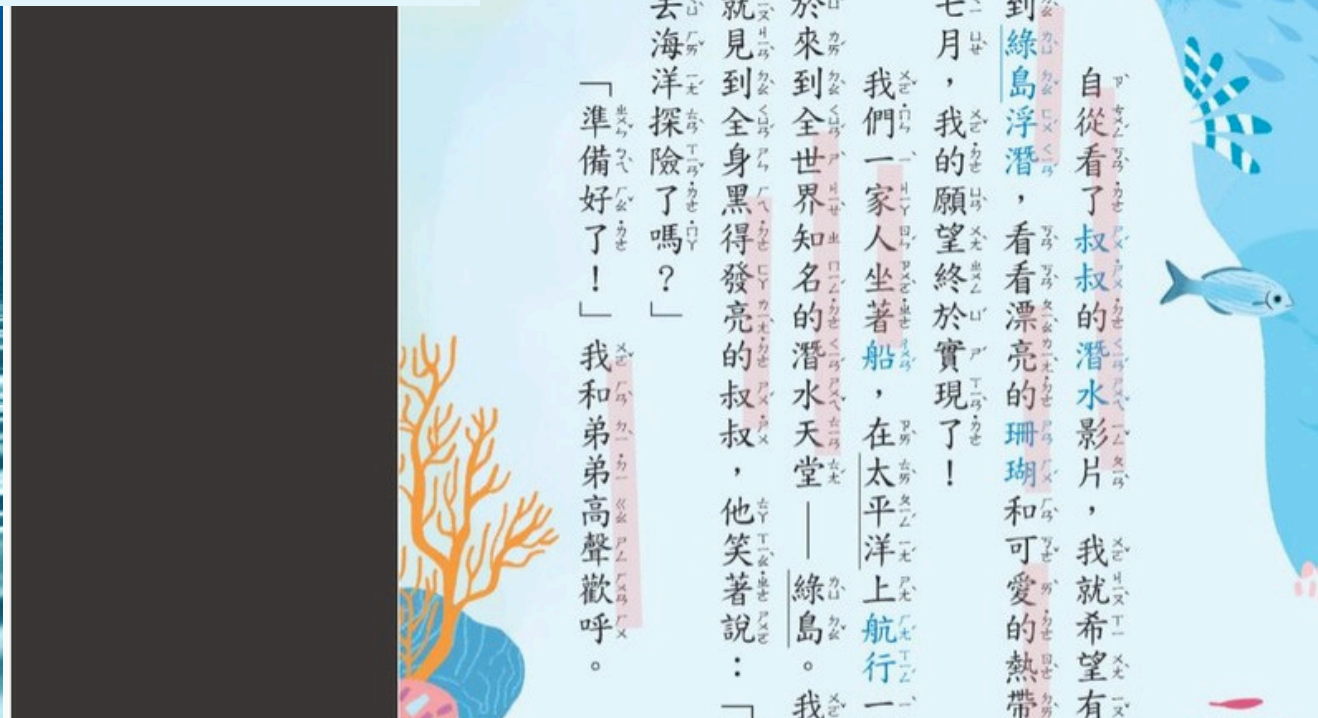 自從看了叔叔的潛水影片，我就希望有
到綠島浮潛，看看漂亮的珊瑚和可愛的熱帶
七月，我的願望終於實現了！
我們一家人坐著船，在太平洋上航行一
於來到全世界知名的潛水天堂——綠島。我
就見到全身黑得發亮的叔叔，他笑著說：「
去海洋探險了嗎？」
「準備好了！」我和弟弟高聲歡呼。